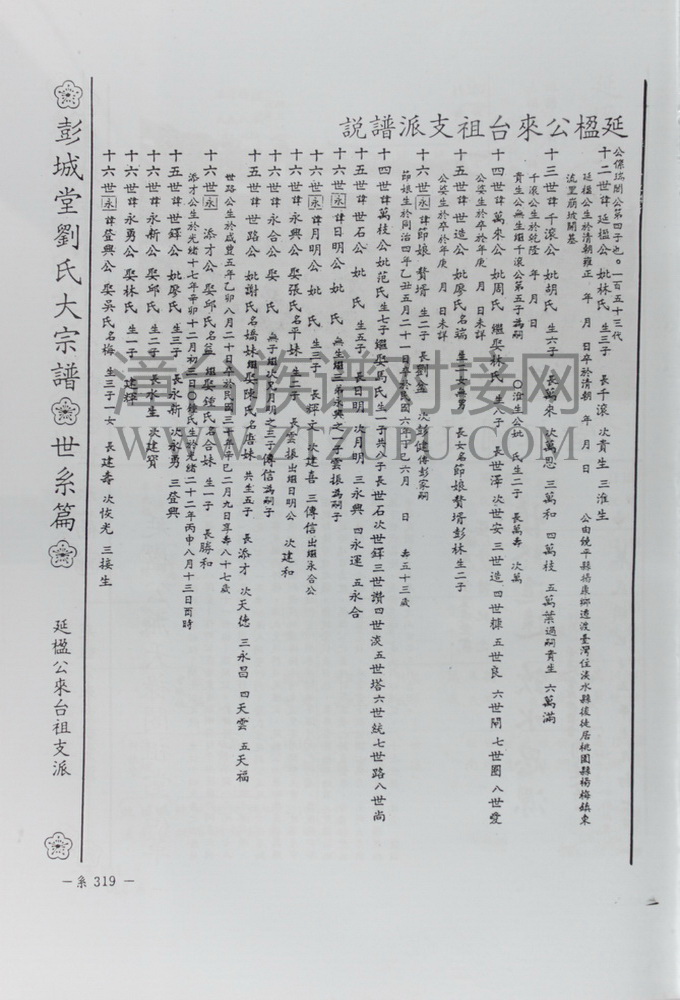 延楹公來台祖支派譜說
公傑瑞閣公第四子也。一百五十三代
十二世諱延楹公 妣林氏 生三子 長千滾 次貴生 三淮生
延楹公生於清朝雍正 年 月 日卒於清朝 年 月 日 公由饒平縣楊康鄉遷渡臺灣住淡水縣後徙居桃園縣楊梅鎮東
流里崩坡開基
十三世諱千滾公 妣胡氏 生六子 長萬來 次萬恩 三萬和 四萬枝 五萬葉過嗣貴生 六萬滿
千滾公生於乾隆 年 月 日
貴生公無生繼千滾公第五子為嗣 ○淮生公妣 氏生二子 長萬壽 次萬
十四世諱萬來公 妣周氏 繼娶林氏 生八子 長世澤 次世安 三世造 四世 五世良 六世開 七世圈 八世愛
公婆生於卒於年庚 月 日未詳
十五世諱世造公 妣廖氏名端 生一女無男 長女名節娘贅壻彭林生二子
公婆生於卒於年庚 月 日未詳
十六世永諱節娘 贅壻 生二子 長劉盒 次彭健傳彭家嗣
節娘生於同治四年乙丑五月二十一日卒於民國六年丁巳六月 日 壽五十三歲
十四世諱萬枝公 妣范氏 生七子 繼娶馬氏生一子共八子長世石次世鐸三世讚四世淡五世塔六世統七世路八世尚
十五世諱世石公 妣 氏 生五子 長日明 次月明 三永興 四永運 五永合
十六世永諱日明公 妣 氏 無生繼三弟永興之一子雲振為嗣子
十六世永諱月明公 妣 氏 生三子 長輝文 次建喜 三傳信出繼永合公
十六世諱永興公 娶張氏名平妹 生二子 長雲振出繼日明公 次建和
十六世諱永合公 娶 氏 無子繼次兄月明之三子傳信為嗣子
十五世諱世路公 妣謝氏名嬌妹 繼娶陳氏名唐妹 共生五子 長添才 次天德 三永昌 四天雲 五天福
世路公生於咸豐五年乙卯八月二十日卒於民國三十年辛巳二月九日享壽八十七歲
十六世永 添才公 娶邱氏名益 繼娶鍾氏名合妹 生一子 長勝和
添才公生於光緒十七年辛卯十二月初三日○鍾氏生於光緒二十二年丙申八月十三日酉時
十五世諱世鐸公 妣廖氏 生三子 長永新 次永勇 三登興
十六世諱永新公 娶邱氏 生二子 長水生 次建寶
十六世諱永勇公 娶林氏 生一子 建輝
十六世永諱登興公 娶吳氏名梅 生三子一女 長建壽 次俊光 三接生
彭城堂劉氏大宗譜 世系篇
延楹公來台祖支派
—系 319—
漳台族谱对接网
WWW.ZTZUPU.COM